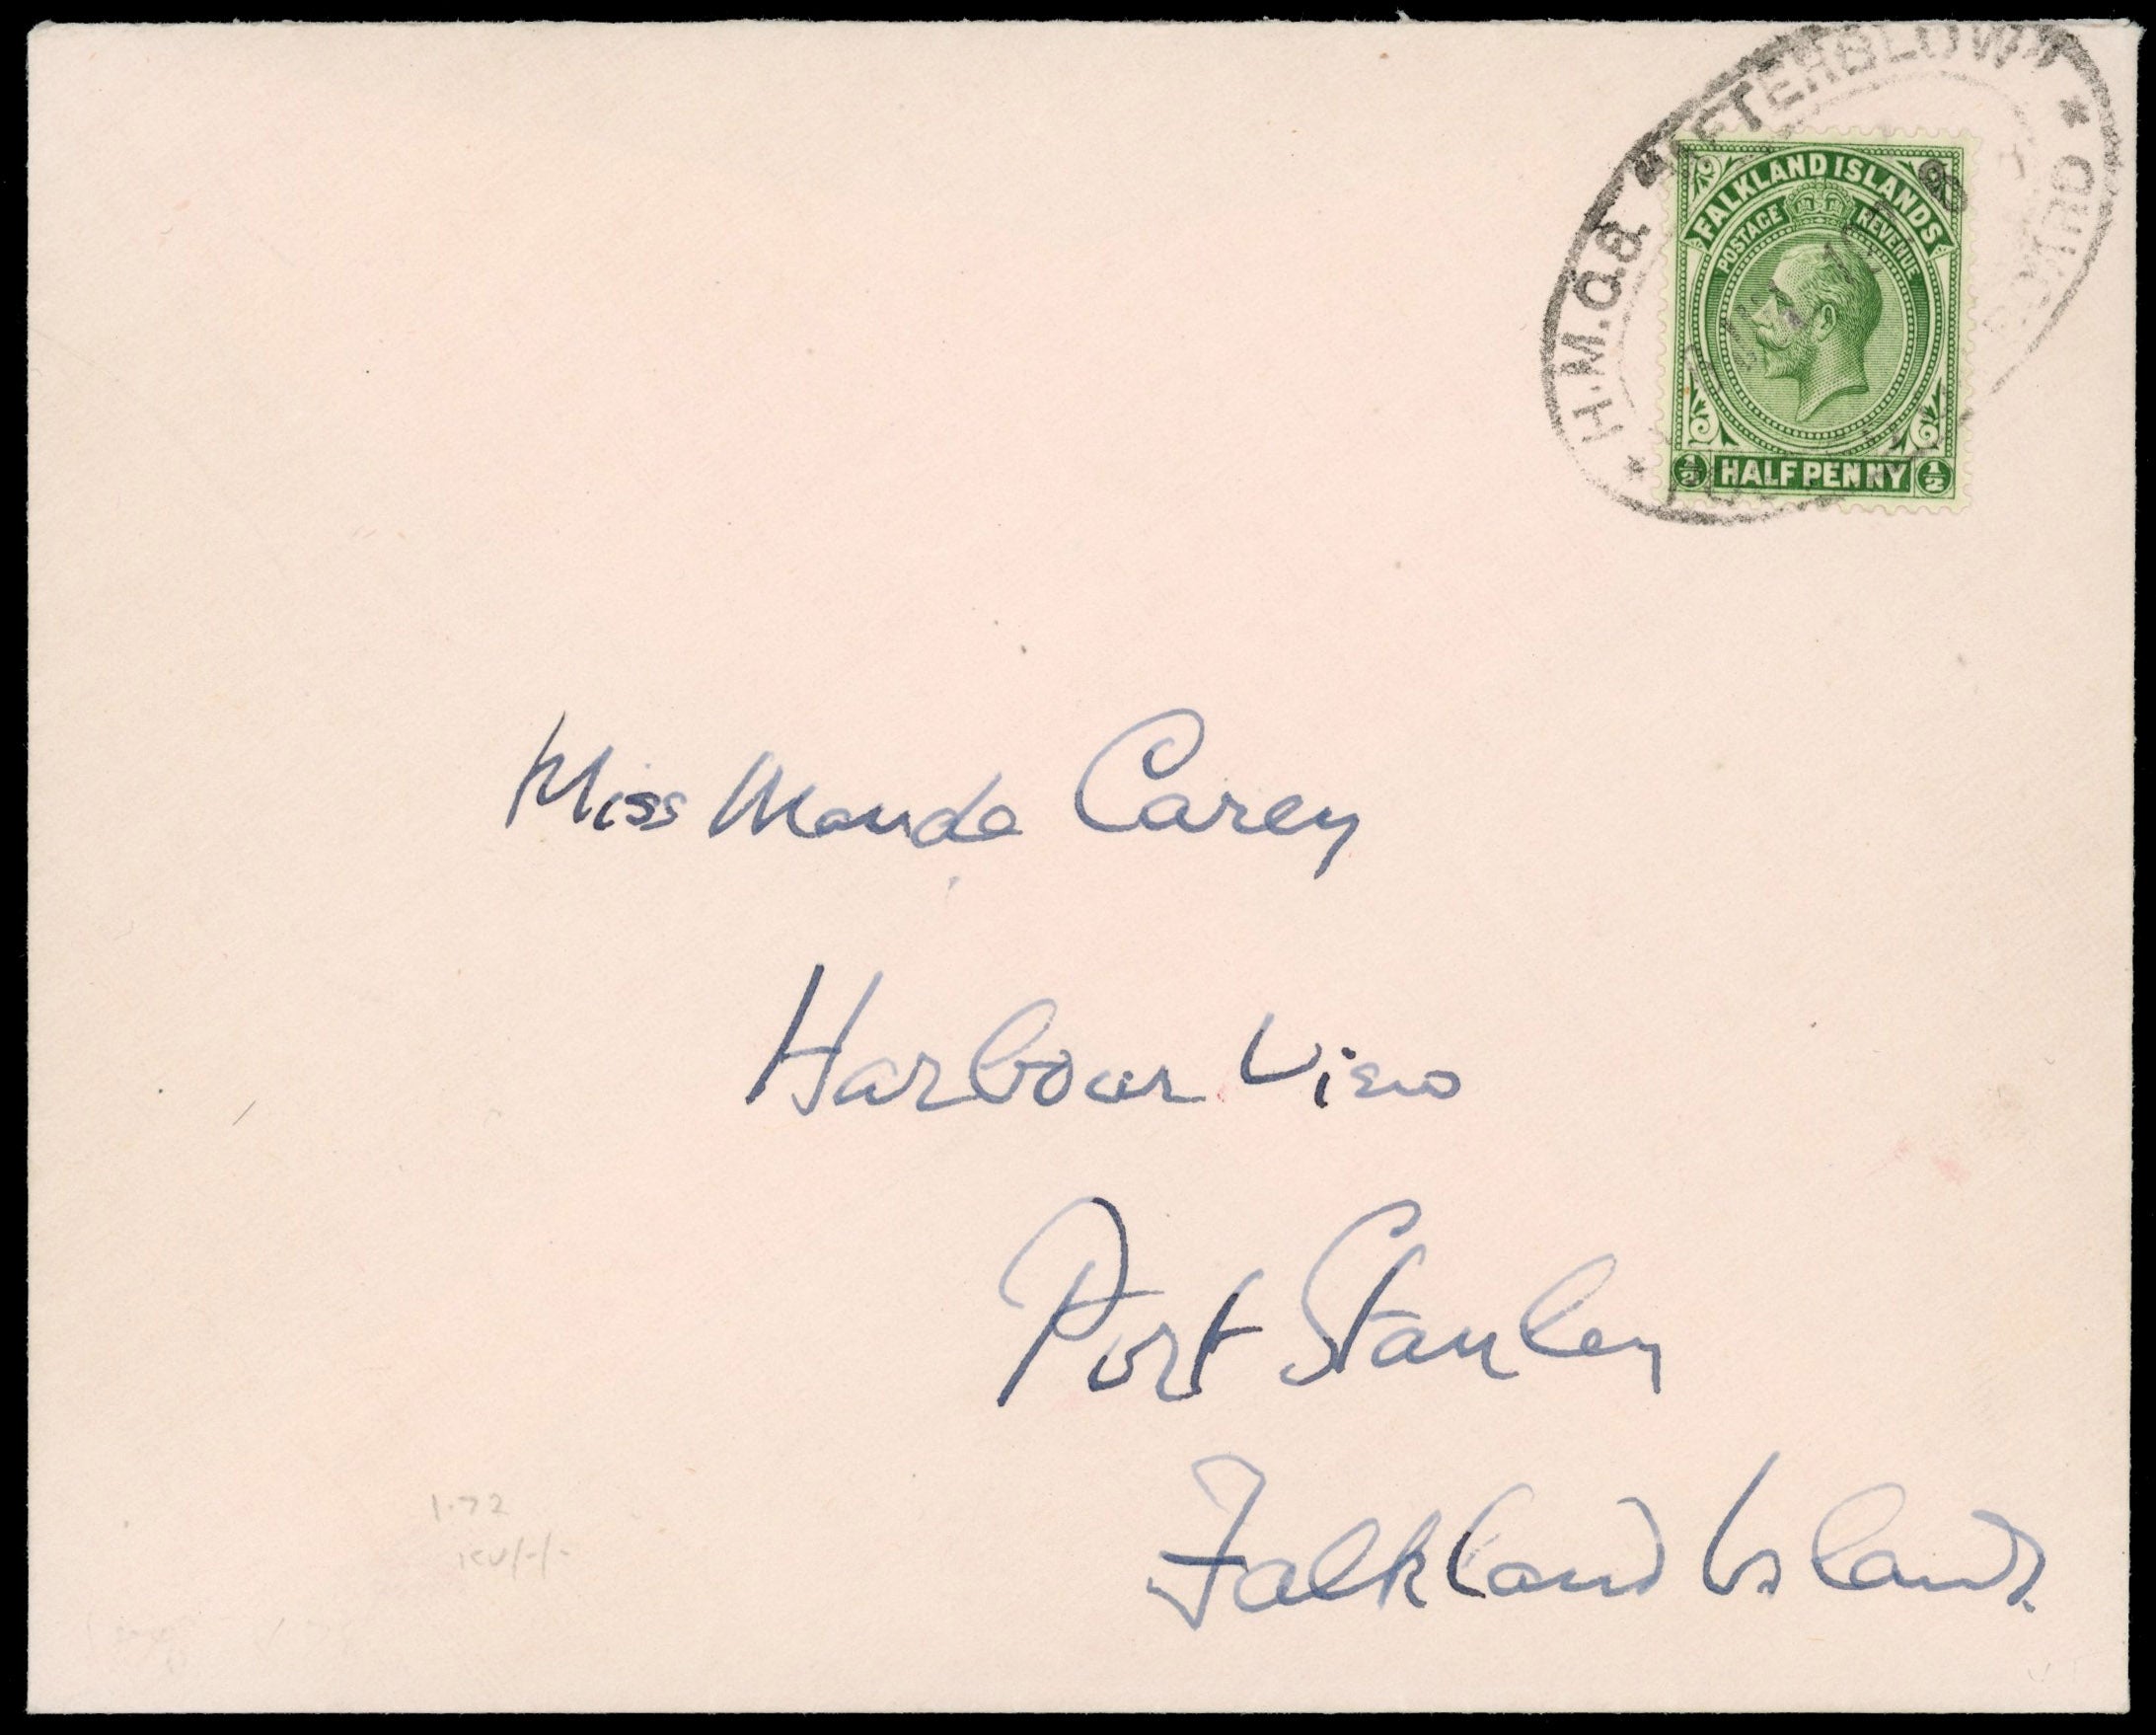 H.M.C.S. "AFTERGLOW"
FALKLAND ISLANDS
POSTAGE REVENUE
½ HALFPENNY ½
Miss Maude Carey
Harbour View
Port Stanley
Falkland Islands.
1.72